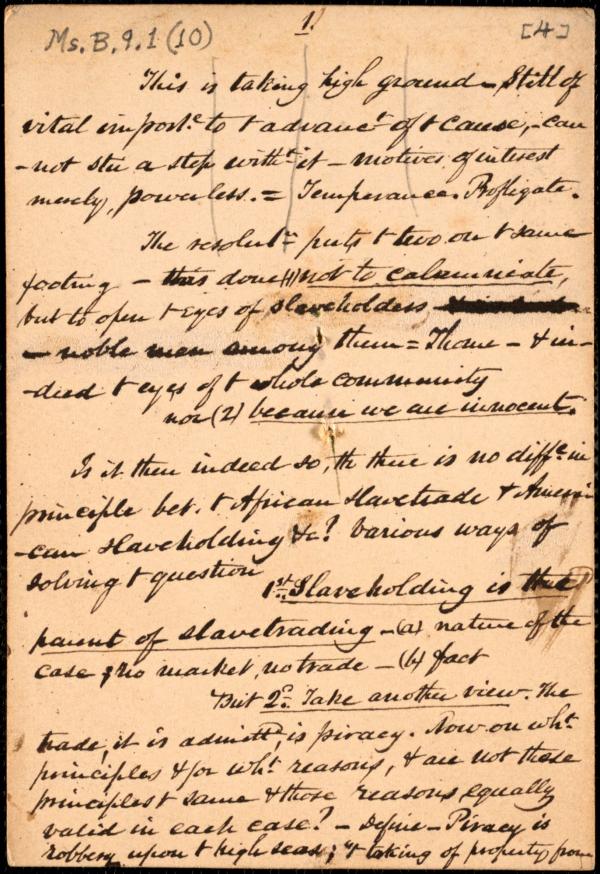 Ms. B. 9. 1 (10)
1.
[4]
This is taking high ground - Still of
vital importe. to t advanct. of t cause, - can
-not stir a step witht. it - motives of interest
merely, powerless. = Temperance. Profligate.
The resolutn. puts t two on t same
footing - this done (1) not to calumniate,
but to open t eyes of slaveholders
- noble men among them = Thome - & in-
-deed t eyes of t whole community
nor (2) because we are innocent.
Is it then indeed so, th there is no diffce. in
principle bet. t African slavetrade & Ameri-
-can slaveholding &c? Various ways of
solving t question
1st. Slaveholding is the
parent of slavetrading - (a) nature of the
case; no market, no trade - (b) fact
But 2d. Take another view. The
trade, it is admittd, is piracy. Now on wht.
principles & for wht. reasons, & are not these
principles t same & those reasons equally
valid in each case? - Define - Piracy is
robbery upon t high seas; "t taking of property from